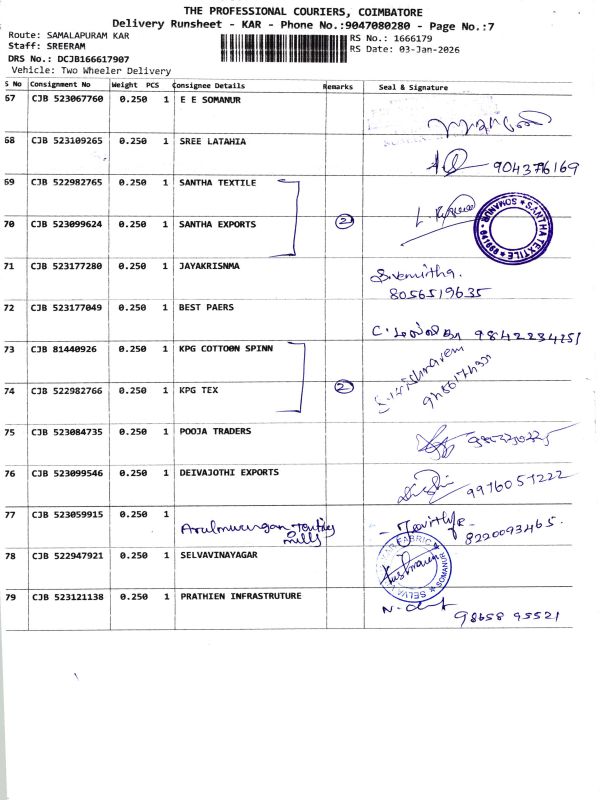 THE PROFESSIONAL COURIERS, COIMBATORE
Delivery Runsheet - KAR - Phone No.:9047080280 - Page No.:7
Route: SAMALAPURAM KAR
RS No.: 1666179
Staff: SREERAM
RS Date: 03-Jan-2026
DRS No.: DCJB166617907
Vehicle: Two Wheeler Delivery
S No Consignment No Weight PCS Consignee Details Remarks Seal & Signature
67 CJB 523067760 0.250 1 E E SOMANUR
68 CJB 523109265 0.250 1 SREE LATAHIA
904376169
69 CJB 522982765 0.250 1 SANTHA TEXTILE
70 CJB 523099624 0.250 1 SANTHA EXPORTS 2
SANTHA TEXTILE * SOMANUR
71 CJB 523177280 0.250 1 JAYAKRISNMA
8056519635
72 CJB 523177049 0.250 1 BEST PAERS
73 CJB 81440926 0.250 1 KPG COTTOON SPINN
74 CJB 522982766 0.250 1 KPG TEX 2
75 CJB 523084735 0.250 1 POOJA TRADERS
76 CJB 523099546 0.250 1 DEIVAJOTHI EXPORTS
9976057222
77 CJB 523059915 0.250 1
Arulmurugan
mills
8220093465.
78 CJB 522947921 0.250 1 SELVAVINAYAGAR
FABRIC * SOMANUR * SELVA
79 CJB 523121138 0.250 1 PRATHIEN INFRASTRUTURE
98658 95521